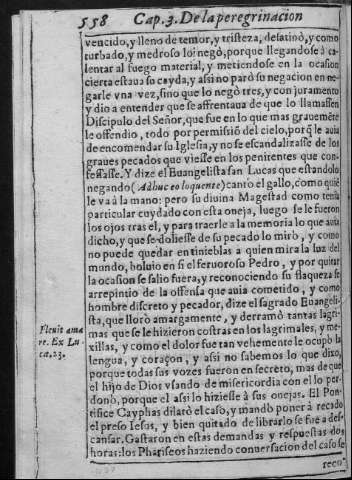 558 Cap. 3. De la peregrinacion
vencido, y lleno de temor, y tristeza, desatinò, y como
turbado, y medroso loi negò, porque llegandose à ca-
lentar al fuego material, y metiendose en la ocasion
cierta estaua su cayda, y assi no parò su negacion en ne-
garle vna vez, sino que lo negò tres, y con juramento
y dio a entender que se affrentaua de que lo llamassen
Discipulo del Señor, que fue en lo que mas grauemẽte
le offendio, todo por permissiõ del cielo, porq̃ le auia
de encomendar su Iglesia, y no se escandalizasse de los
graues pecados que viesse en los penitentes que con-
fessasse. Y dize el Euangelista san Lucas que estandolo
negando (Adhuc eo loquente) canto el gallo, como quiẽ
le va à la mano: pero su diuina Magestad como tenia
particular cuydado con esta oueja, luego se le fueron
los ojos tras el, y para traerle a la memoria lo que auia
dicho, y que se doliesse de su pecado lo mirò, y como
no puede quedar en tinieblas a quien mira la luz del
mundo, boluio en si el feruoroso Pedro, y por quitar
la ocasion se salio fuera, y reconociendo su flaqueza se
arrepintio de la offensa que auia cometido, y como
hombre discreto y pecador, dize el sagrado Euangeli-
sta, que llorò amargamente, y derramò tantas lagri-
mas que se le hizieron costras en los lagrimales, y me-
xillas, y como el dolor fue tan vehemente le ocupò la
lengua, y coraçon, y assi no sabemos lo que dixo,
porque todas sus vozes fueron en secreto, mas de que
el hijo de Dios vsando de misericordia con el lo per-
donò, porque el assi lo hiziesse à sus ouejas. El Pon-
tifice Cayphas dilatò el caso, y mandò poner à recado
el preso Iesus, y bien quitado de librarlo se fue a des-
cansar. Gastaron en estas demandas y respuestas dos
horas: los Phariseos haziendo conuersacion del caso se
reco
Fleuit ama
re. Ex Lu-
ca. 23.